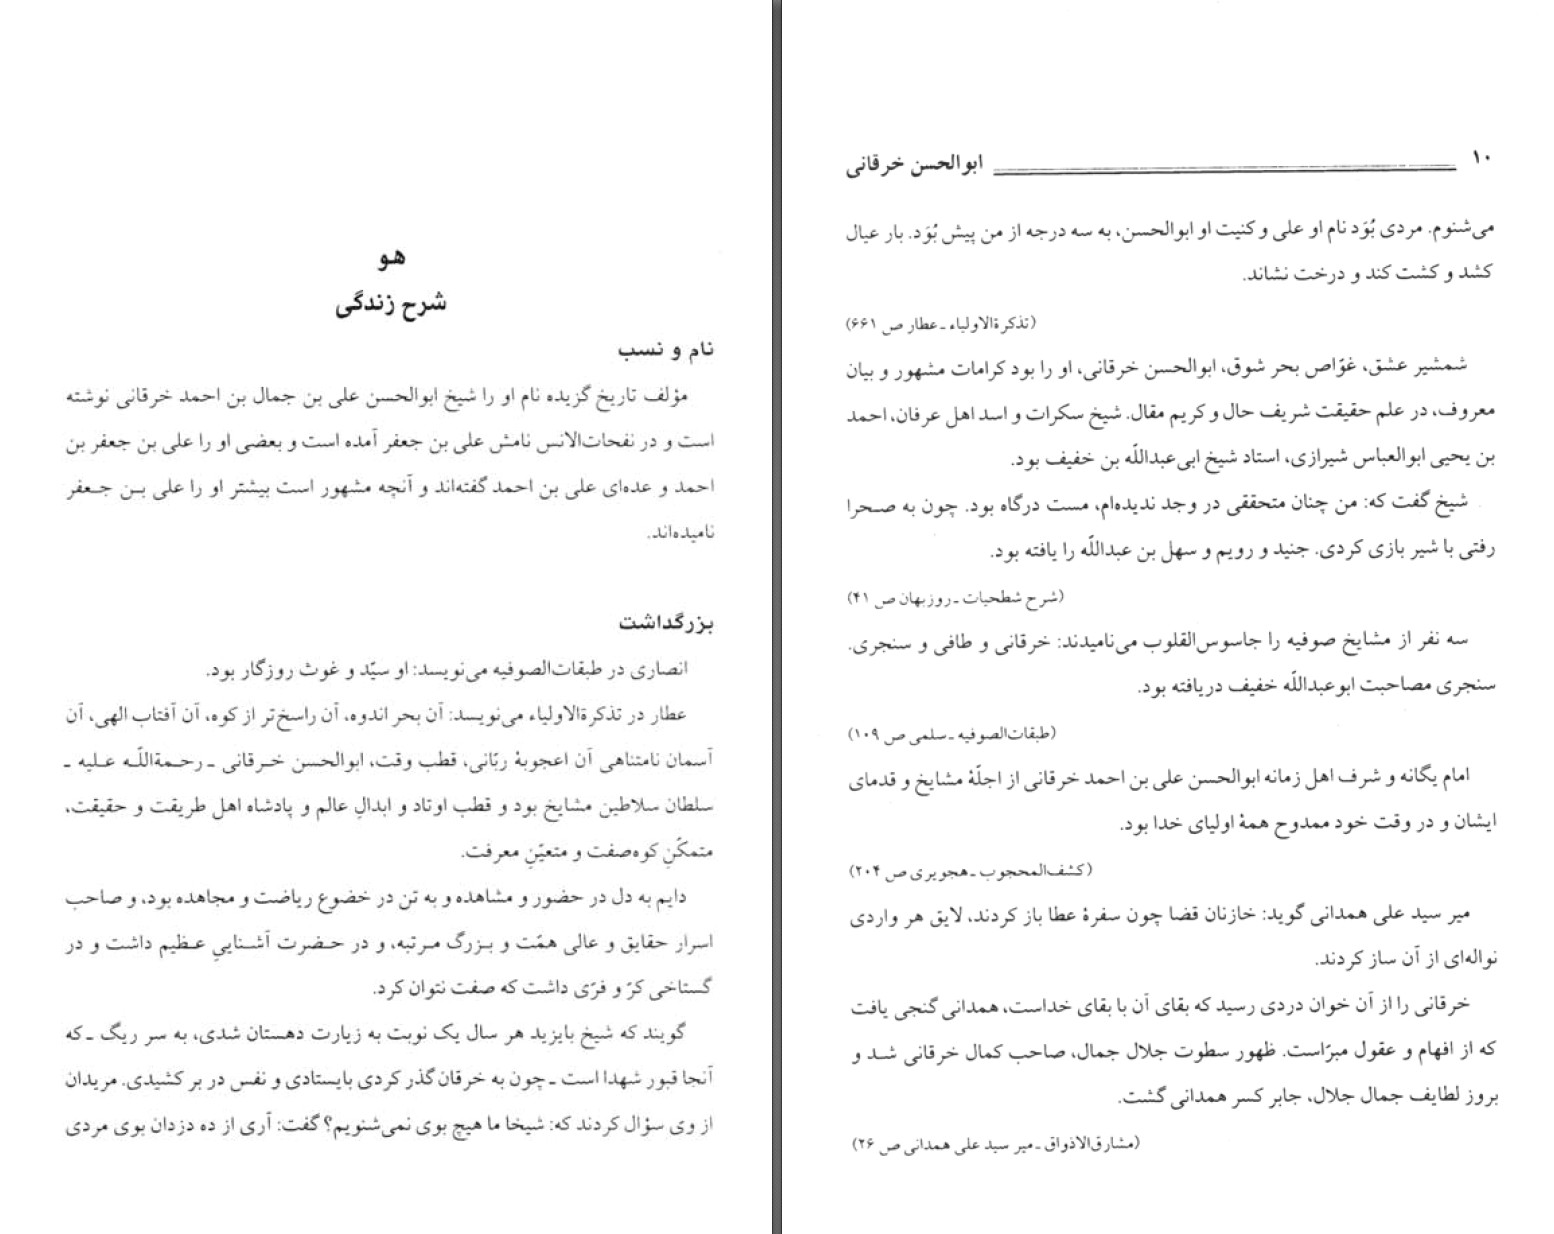 هو
شرح زندگی
نام و نسب
مؤلف تاریخ گزیده نام او را شیخ ابوالحسن علی بن جمال بن احمد خرقانی نوشته
است و در نفحات‌الانس نامش علی بن جعفر آمده است و بعضی او را علی بن جعفر بن
احمد و عده‌ای علی بن احمد گفته‌اند و آنچه مشهور است بیشتر او را علی بـن جـعفر
نامیده‌اند.
بزرگداشت
انصاری در طبقات‌الصوفیه می‌نویسد: او سیّد و غوث روزگار بود.
عطار در تذکرةالاولیاء می‌نویسد: آن بحر اندوه، آن راسخ‌تر از کوه، آن آفتاب الهی، آن
آسمان نامتناهی آن اعجوبهٔ ربّانی، قطب وقت، ابوالحسن خـرقانی ـ رحـمةاللّـه عـلیه ـ
سلطان سلاطین مشایخ بود و قطب اوتاد و ابدالِ عالم و پادشاه اهل طریقت و حقیقت،
متمکّنِ کوه‌صفت و متعیّنِ معرفت.
دایم به دل در حضور و مشاهده و به تن در خضوع ریاضت و مجاهده بود، و صاحب
اسرار حقایق و عالی همّت و بـزرگ مـرتبه، و در حـضرت آشـنایيِ عـظیم داشت و در
گستاخی کرّ و فرّی داشت که صفت نتوان کرد.
گویند که شیخ بایزید هر سال یک نوبت به زیارت دهستان شدی، به سر ریگ ـ که
آنجا قبور شهدا است ـ چون به خرقان گذر کردی بایستادی و نفس در بر کشیدی. مریدان
از وی سؤال کردند که: شیخا ما هیچ بوی نمی‌شنویم؟ گفت: آری از ده دزدان بوی مردی
۱۰ ابوالحسن خرقانی
می‌شنوم. مردی بُوَد نام او علی و کنیت او ابوالحسن، به سه درجه از من پیش بُوَد. بار عیال
کشد و کشت کند و درخت نشاند.
(تذکرةالاولیاء ـ عطار ص ۶۶۱)
شمشیر عشق، غوّاص بحر شوق، ابوالحسن خرقانی، او را بود کرامات مشهور و بیان
معروف، در علم حقیقت شریف حال و کریم مقال. شیخ سکرات و اسد اهل عرفان، احمد
بن یحیی ابوالعباس شیرازی، استاد شیخ ابی‌عبداللّه بن خفیف بود.
شیخ گفت که: من چنان متحققی در وجد ندیده‌ام، مست درگاه بود. چون به صـحرا
رفتی با شیر بازی کردی. جنید و رویم و سهل بن عبداللّه را یافته بود.
(شرح شطحیات ـ روزبهان ص ۴۱)
سه نفر از مشایخ صوفیه را جاسوس‌القلوب می‌نامیدند: خرقانی و طافی و سنجری.
سنجری مصاحبت ابوعبداللّه خفیف دریافته بود.
(طبقات‌الصوفیه ـ سلمی ص ۱۰۹)
امام یگانه و شرف اهل زمانه ابوالحسن علی بن احمد خرقانی از اجلّهٔ مشایخ و قدمای
ایشان و در وقت خود ممدوح همهٔ اولیای خدا بود.
(کشف‌المحجوب ـ هجویری ص ۲۰۴)
میر سید علی همدانی گوید: خازنان قضا چون سفرهٔ عطا باز کردند، لایق هر واردی
نواله‌ای از آن ساز کردند.
خرقانی را از آن خوان دردی رسید که بقای آن با بقای خداست، همدانی گنجی یافت
که از افهام و عقول مبرّاست. ظهور سطوت جلال جمال، صاحب کمال خرقانی شـد و
بروز لطایف جمال جلال، جابر کسر همدانی گشت.
(مشارق‌الاذواق ـ میر سید علی همدانی ص ۲۶)